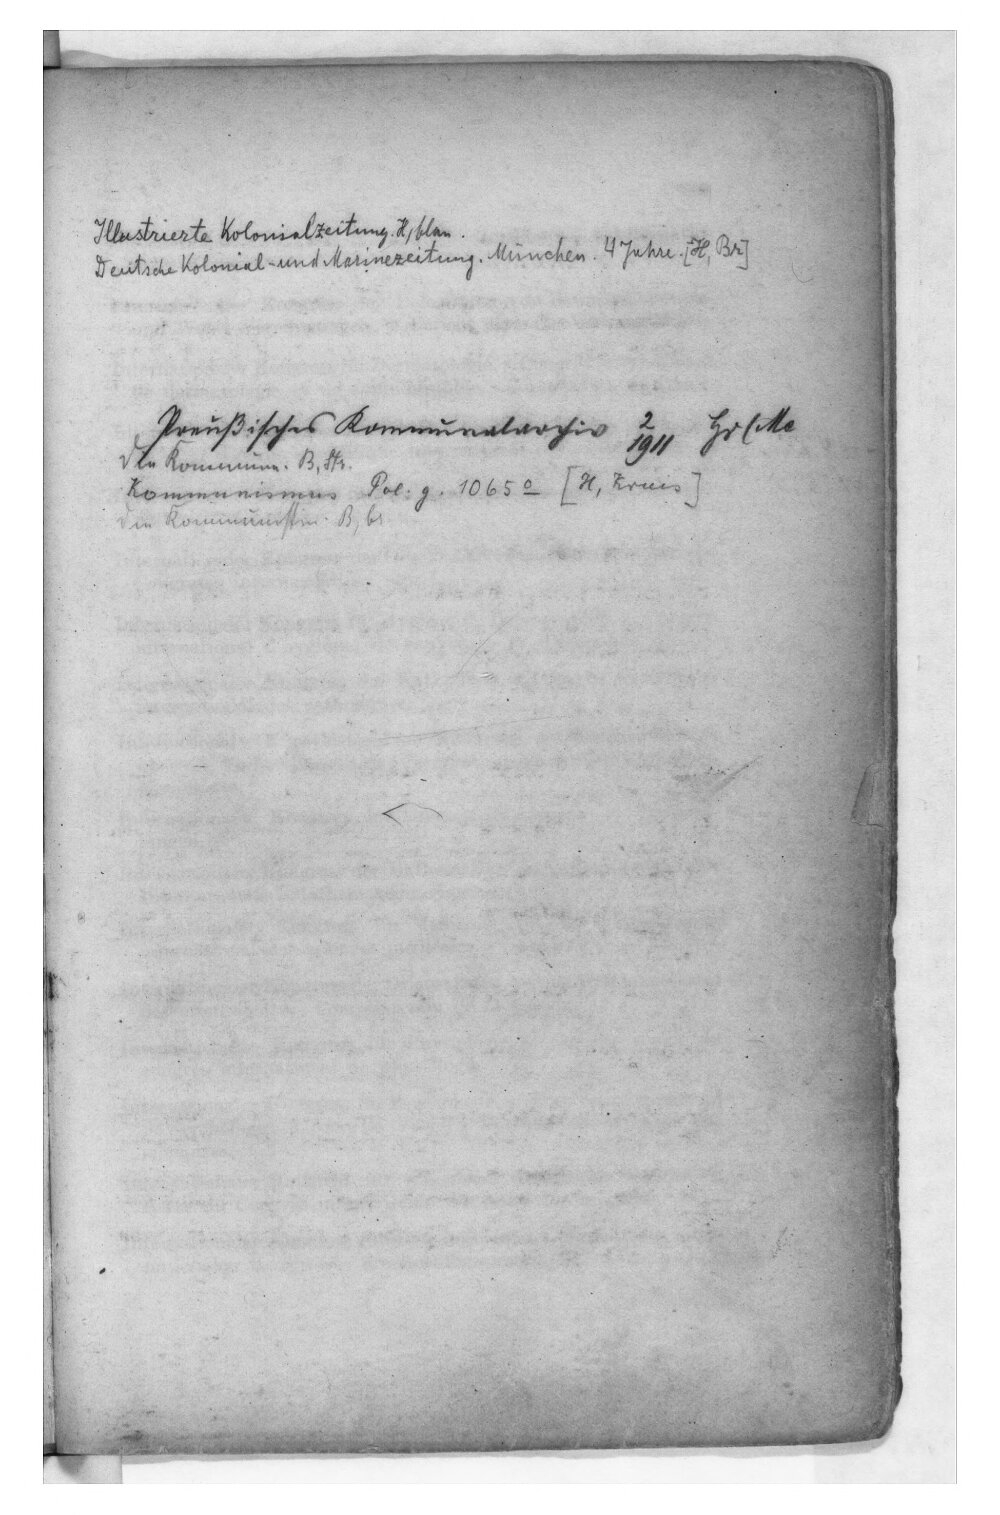 Illustrierte Kolonialzeitung. H, blau.
Deutsche Kolonial- und Marinezeitung. München. 4 Jahre. [H, Br]
Preußisches Kommunalarchiv 2/1911 Hr/Me
Die Kommune. B, Str.
Kommunismus Pol. g. 1065º [H, Kreis]
Die Kommunistin. B, br